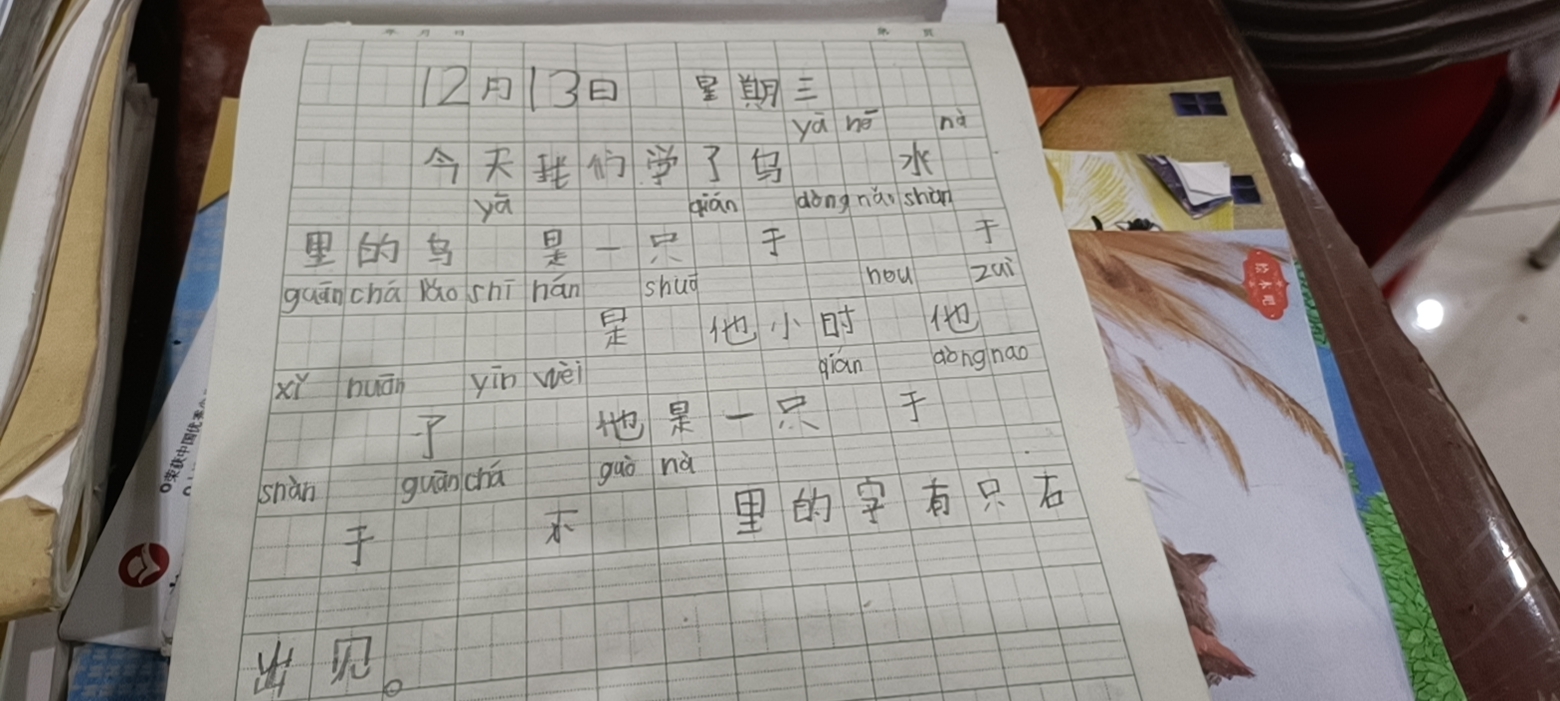 年 月 日 第 页
12月13日 星期三
yā hē nà
今天我们学了乌 水
yā qián dòng nǎo shàn
里的乌 是一只 于 于
guān chá lǎo shī hán shuō hou zuì
是 他小时 他
xǐ huān yīn wèi qián dòng nao
了 他是一只 于
shàn guān chá guò nà
于 不 里的字有只右
出见。
绘本吧
荣获中国优秀